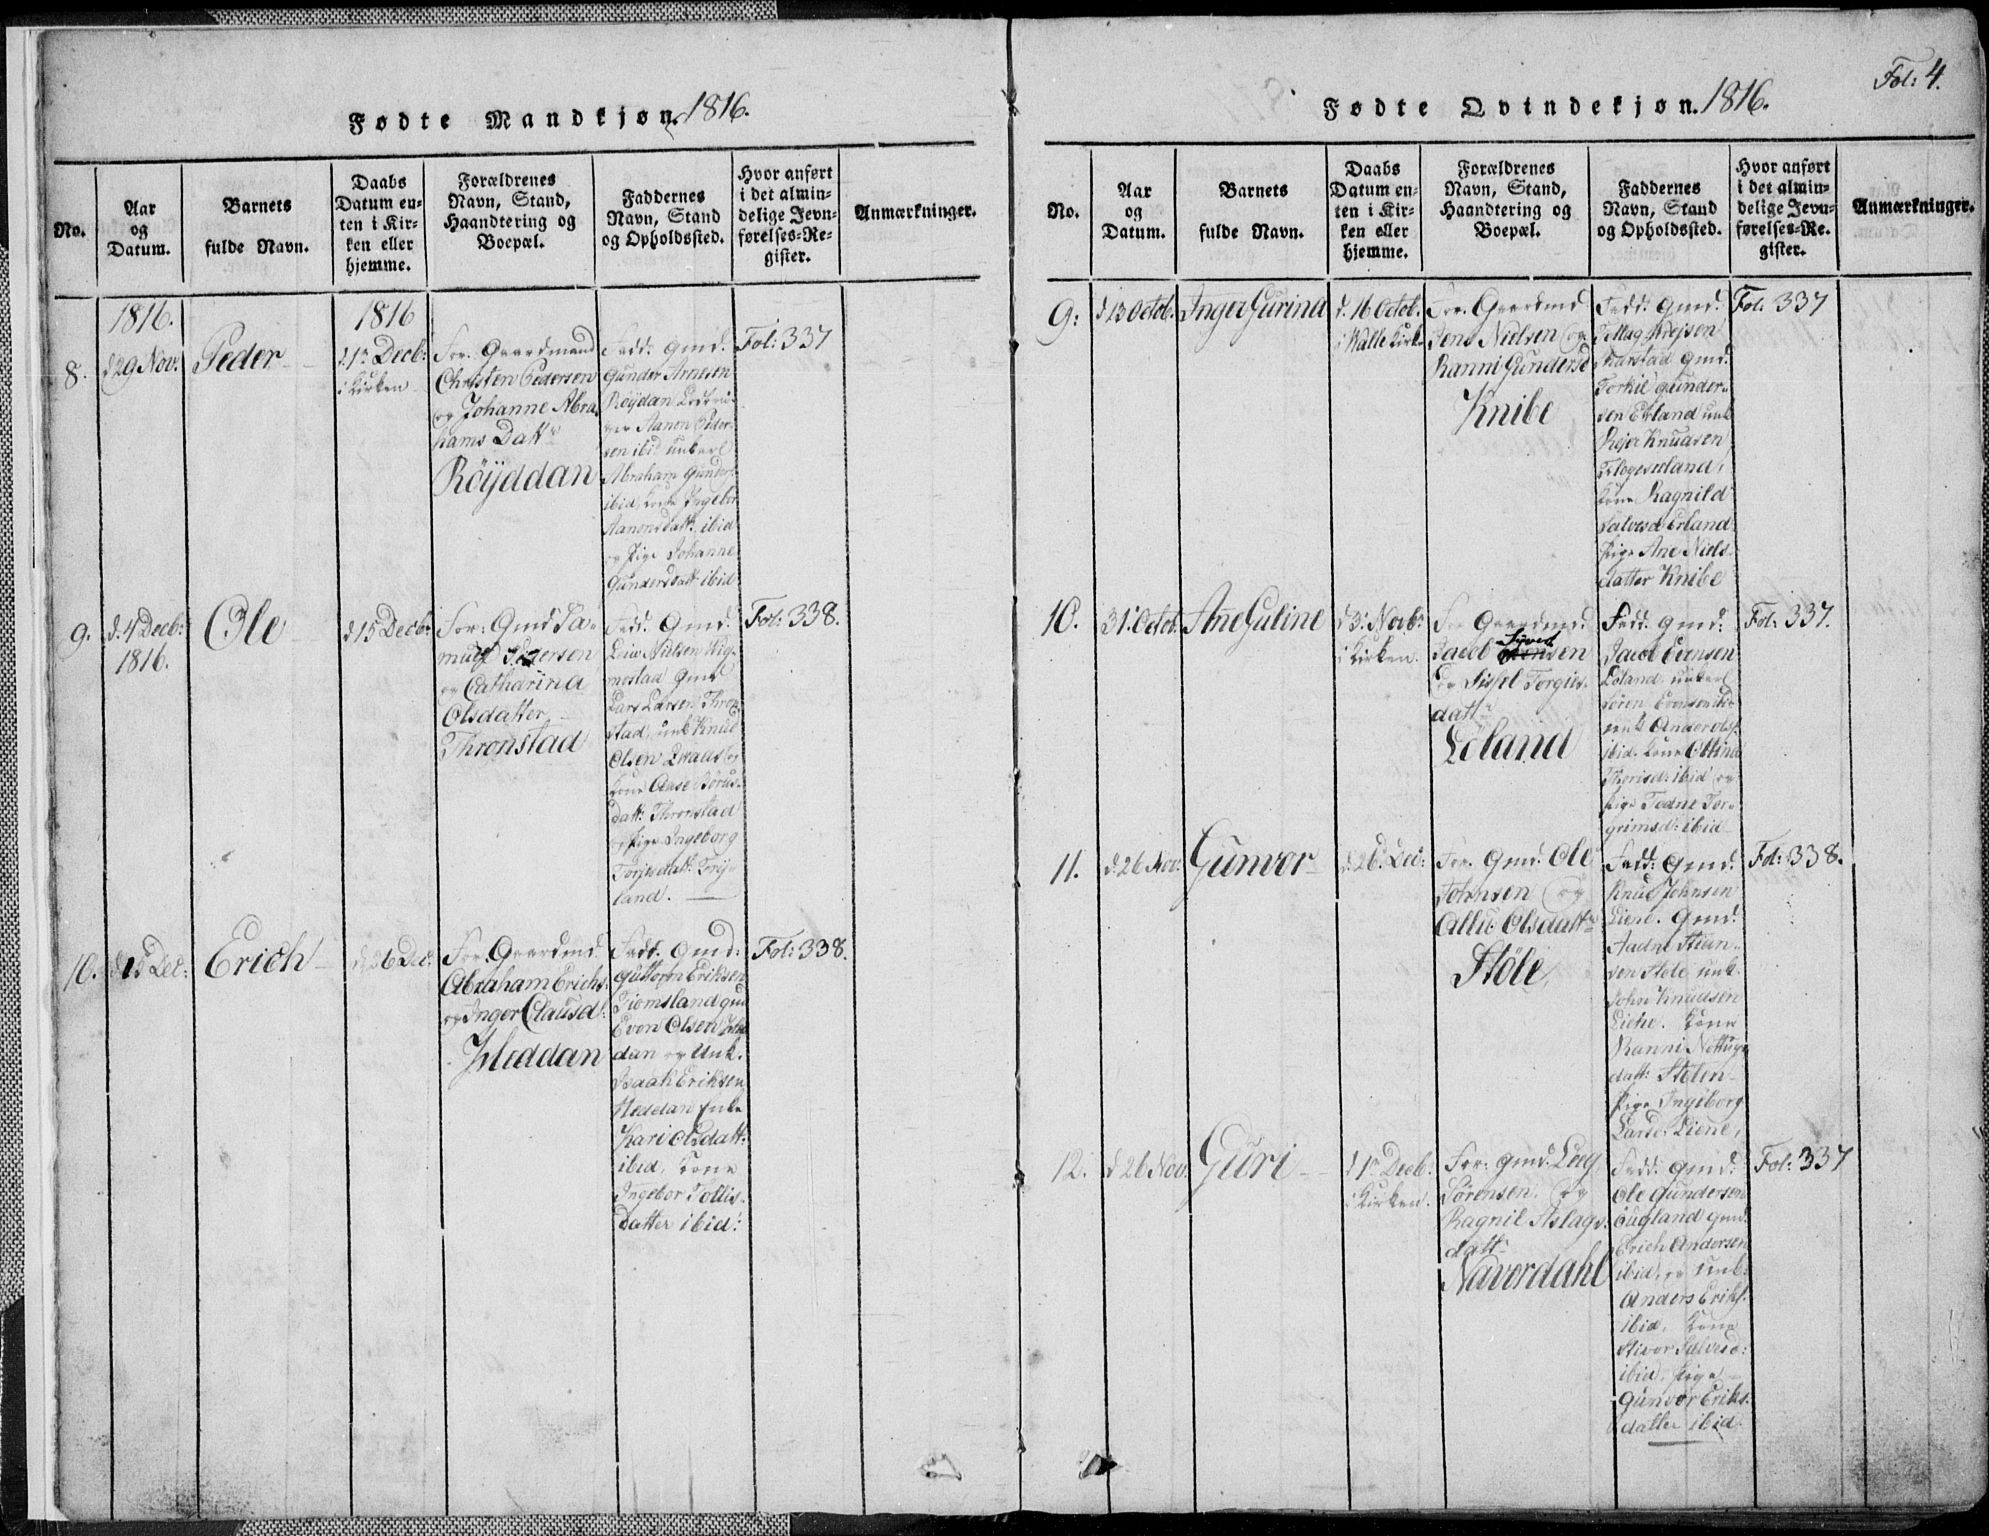 Fødte Mandkjøn. 1816.
No.
Aar
og
Datum.
Barnets
fulde Navn.
Daabs
Datum en-
ten i Kir-
ken eller
hjemme.
Forældrenes
Navn, Stand,
Haandtering og
Boepæl.
Faddernes
Navn, Stand
og Opholdssted.
Hvor anført
i det almin-
delige Jevn-
førelses-Re-
gister.
Anmærkninger.
8.
1816.
d 29 Nov:
Peder
1816
d 1n Decb:
i Kirken
For. Gaardmand
Christen Pedersen
og Johanne Abra
hams Dattr
Röyddan
Fadd: Gmd.
Gunder Arnesen
Röÿdan
Aanon Peder-
sen ibid unkarl
Abraham Gunders
ibid, kone Ingebor
Aanonsdatt: ibid
og pige Johanne
Gundersdatt ibid
Fol: 337
9.
d: 4 Decb:
1816.
Ole
d 15 Decbr
For: Gmd Sa-
muel Pedersen
og Catharina
Olsdatter
Thronstad
Fadd: Gmd.
Leiv Nielsen Wig-
mostad Gmd
Lars Larsen Thron
stad, unk Knud
Olsen
kone Aase
datt: Thronstad
pige Ingeborg
land.
Fol: 338.
10.
d 15 Dec:
Erich
d 26 Dec:
For. Gaardmd.
Abraham Erichs:
og Inger Clausd:
Heddan
Fadd: Gmd:
Guttorm Eriksen
Tiomsland gmd
Even Olsen Hed
dan og Unk.
Isaak Eriksen
Heddan Enke
Kari Olsdatt:
ibid. Kone
Ingebor Tollis-
datter ibid:
Fol: 338.
Fol: 4.
Fødte Qvindekjøn. 1816.
No.
Aar
og
Datum.
Barnets
fulde Navn.
Daabs
Datum en-
ten i Kir-
ken eller
hjemme.
Forældrenes
Navn, Stand,
Haandtering og
Boepæl.
Faddernes
Navn, Stand
og Opholdssted.
Hvor anført
i det almin-
delige Jevn-
førelses-Re-
gister.
Anmærkninger.
9:
d 13 Octob.
Inger Gurina
d. 16 Octob.
i Walle Kirk
For. Gaardmd
Jens Nielsen og
Ranni Gundersd
Knibe
Fadd: Gmd.
Tellag
gmd.
Torkil Gunder-
sen Erland unk
Reje Knudsen
kone Ragnild
Salvesd Erland
pige Ane Niels
datter Knibe
Fol: 337
10.
31: Octob.
Ane Guline
d 3: Novbr
i Kirken.
For Gaardmd.
Jacob Syvert
sen
og Sissel Torgius-
dattr
Löland
Fadd. Gmd:
Jacob Evensen
Löland unkarl
Sören Evensen
unk Anders Ols:
ibid. kone
ibid og
pige Todne Tor-
grimsd: ibid
Fol: 337.
11.
d. 26 Nov:
Gunvor
d. 26. Dec:
For. Gmd. Ole
Johnsen og
Allis Olsdattr
Stöle,
Fadd: Gmd.
Knud Johnsen
Liene. Gmd.
Aadne Stian-
sen Stöle unk.
John Knudsen
Liene. Kone
Ranni
datt: Stölen
pige Ingeborg
Larsd: Liene,
Fol: 338.
12.
d 26 Nov.
Guri
d 1n Decb.
i Kirken.
For: gmd. Lag
Sörensen. og
Ragnil Aslags-
dattr
Navordahl
Fadd: Gmd:
Ole Gundersen
Eugland gmd.
Erich Andersen
ibid, og unk:
Anders Eriks.
ibid. kone
Stivor Salvesd:
ibid. pige
Gunvor Eriks-
datter ibid
Fol: 337